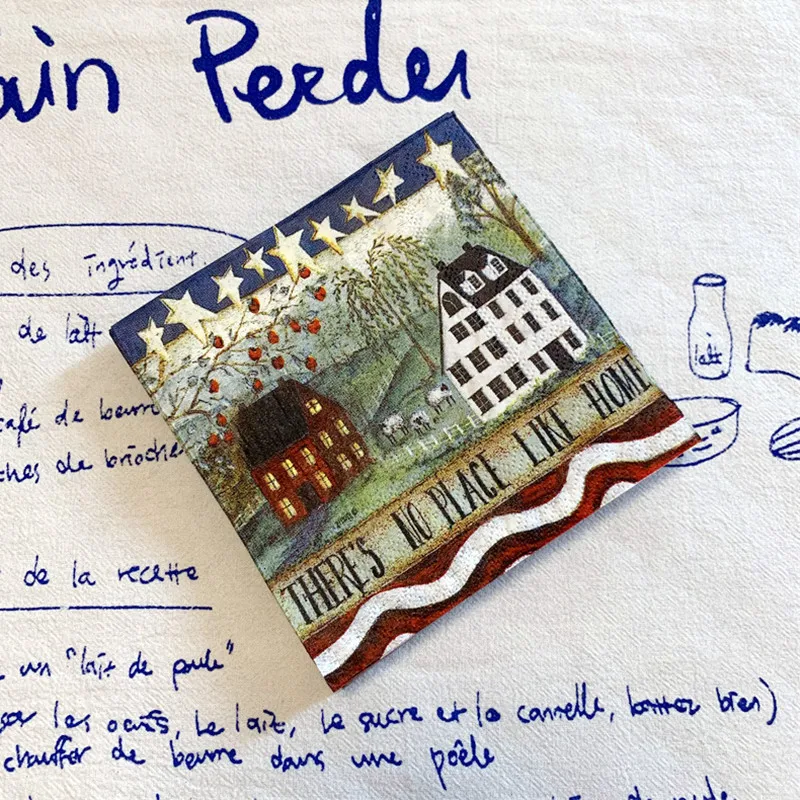 ain Perdu
des ingrédient.
de lait
café de beurre
ches de brioche
THERE'S NO PLACE LIKE HOME
lait
de la recette
un "lait de poule"
les oeufs, le lait, le sucre et la cannelle, battez bien)
chauffer de beurre dans une poêle